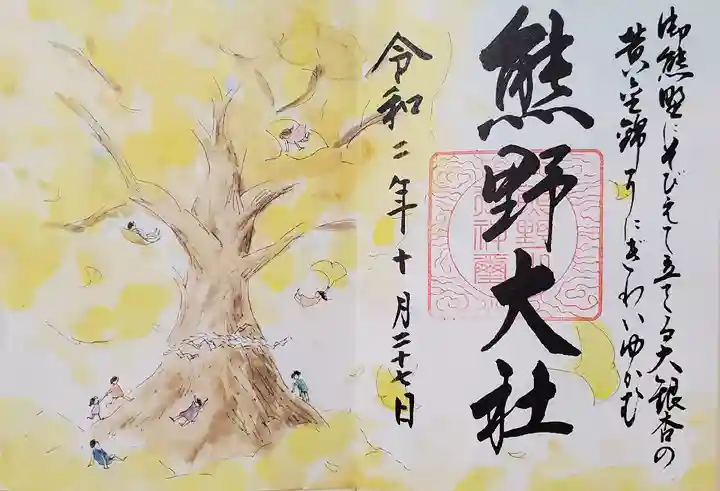 御熊野にそびえて立てる大銀杏の
黄金錦よにぎわいゆかむ
熊野大社
令和二年十月二十七日